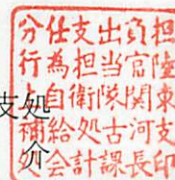 分任支出負担
行為担当官陸
上自衛隊関東
補給処古河支
処会計課長印
支処
介